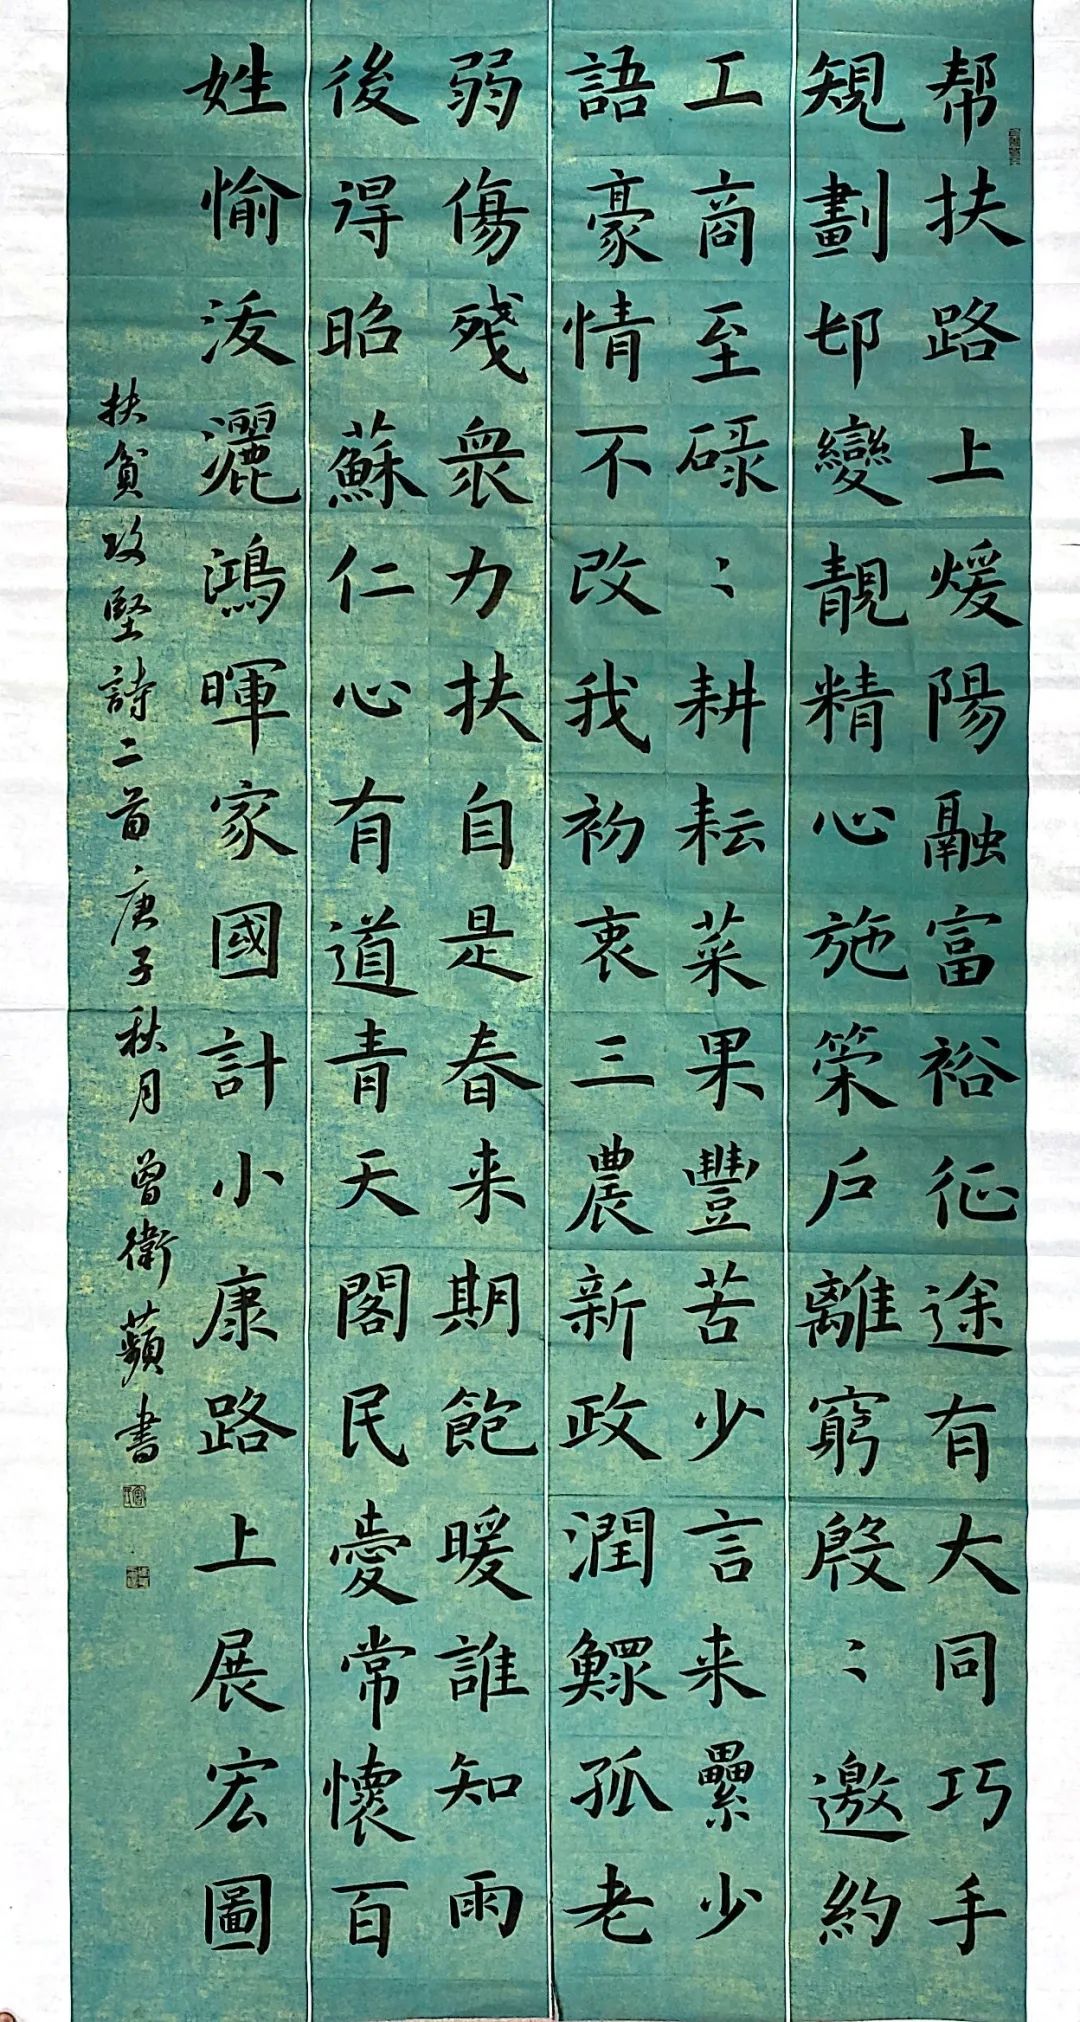 帮扶路上煖陽融富裕征途有大同巧手
規劃邨變靚精心施策户離窮殷〻邀約
工商至碌〻耕耘菜果豐苦少言来纍少
語豪情不改我初衷三農新政潤鰥孤老
弱傷残衆力扶自是春来期飽暖誰知雨
後得昭蘇仁心有道青天閣民愛常懷百
姓愉㳖灑鴻暉家國計小康路上展宏圖
扶貧攻堅詩二首庚子秋月曾衛蘋書